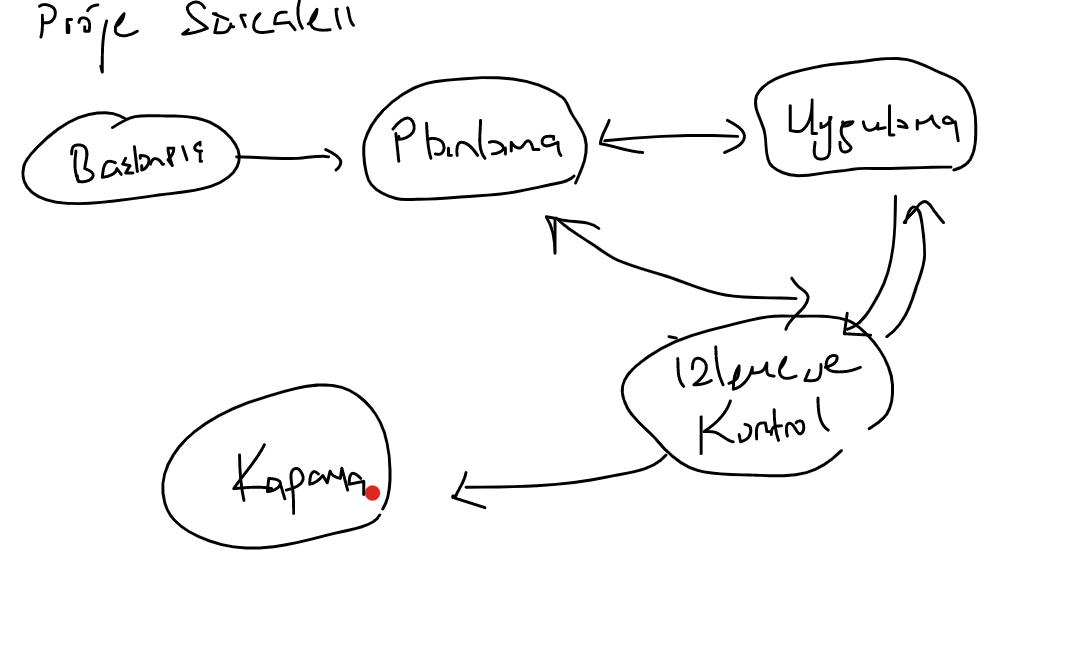 Proje Süreçleri
Başlangıç
Planlama
Uygulama
İzleme ve
Kontrol
Kapama